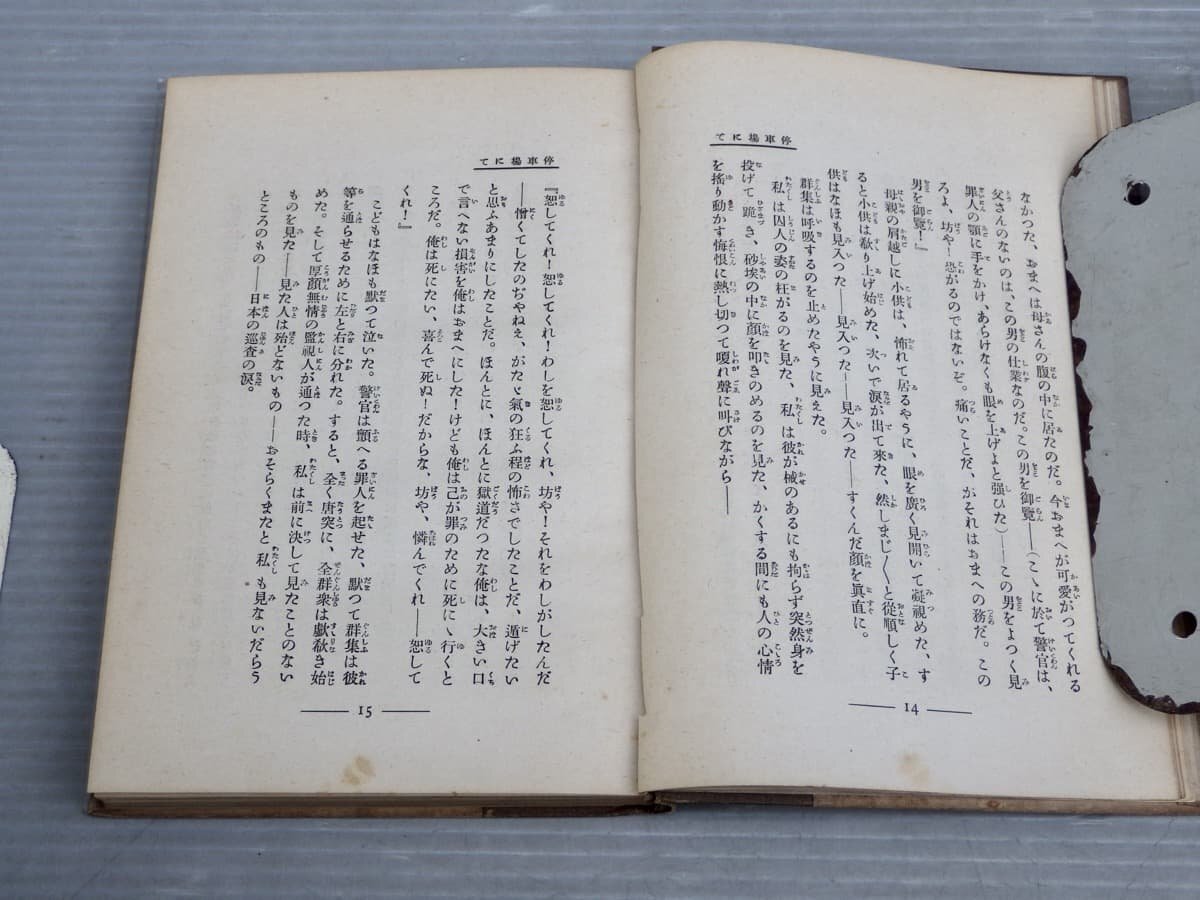 停車場にて
なかつた、おまへは母さんの腹の中に居たのだ。今おまへが可愛がつてくれる
父さんのないのは、この男の仕業なのだ。この男を御覽――（こゝに於て警官は、
罪人の顎に手をかけ、あらけなくも眼を上げよと强ひた）――この男をよつく見
ろよ、坊や！恐がるのではないぞ。痛いことだ、がそれはおまへの務だ。この
男を御覽！』
母親の肩越しに小供は、怖れて居るやうに、眼を廣く見開いて凝視めた、す
ると小供は歔り上げ始めた、次いで淚が出て來た、然しまじ〱と從順しく子
供はなほも見入つた――見入つた――見入つた――すくんだ顔を眞直に。
群集は呼吸するのを止めたやうに見えた。
私は囚人の姿の枉がるのを見た、私は彼が械のあるにも拘らず突然身を
投げて跪き、砂埃の中に顔を叩きのめるのを見た、かくする間にも人の心情
を搖り動かす悔恨に熱し切つて嗄れ聲に叫びながら――
14
停車場にて
『恕してくれ！恕してくれ！わしを恕してくれ、坊や！それをわしがしたんだ
――憎くてしたのぢやねえ、がたゞ氣の狂ふ程の怖さでしたことだ、遁げたい
と思ふあまりにしたことだ。ほんとに、ほんとに獄道だつたな俺は、大きい口
で言へない損害を俺はおまへにした！けども俺は己が罪のために死にゝ行くと
ころだ。俺は死にたい、喜んで死ぬ！だからな、坊や、憐んでくれ――恕して
くれ！』
こどもはなほも默つて泣いた。警官は顫へる罪人を起せた、默つて群集は彼
等を通らせるために左と右に分れた。すると、全く唐突に、全群衆は歔欷き始
めた。そして厚顔無情の監視人が通つた時、私は前に決して見たことのない
ものを見た――見た人は殆どないもの――おそらくまたと私も見ないだらう
ところのもの――日本の巡査の淚。
15